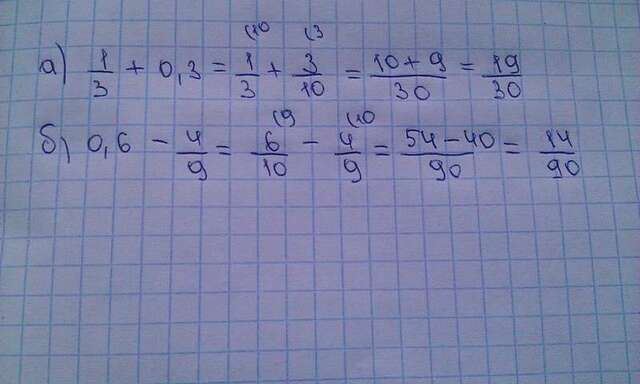 а) 1/3 + 0,3 = 1/3 (10 + 3/10 (3 = 10+9/30 = 19/30
б) 0,6 - 4/9 = 6/10 (9 - 4/9 (10 = 54-40/90 = 14/90